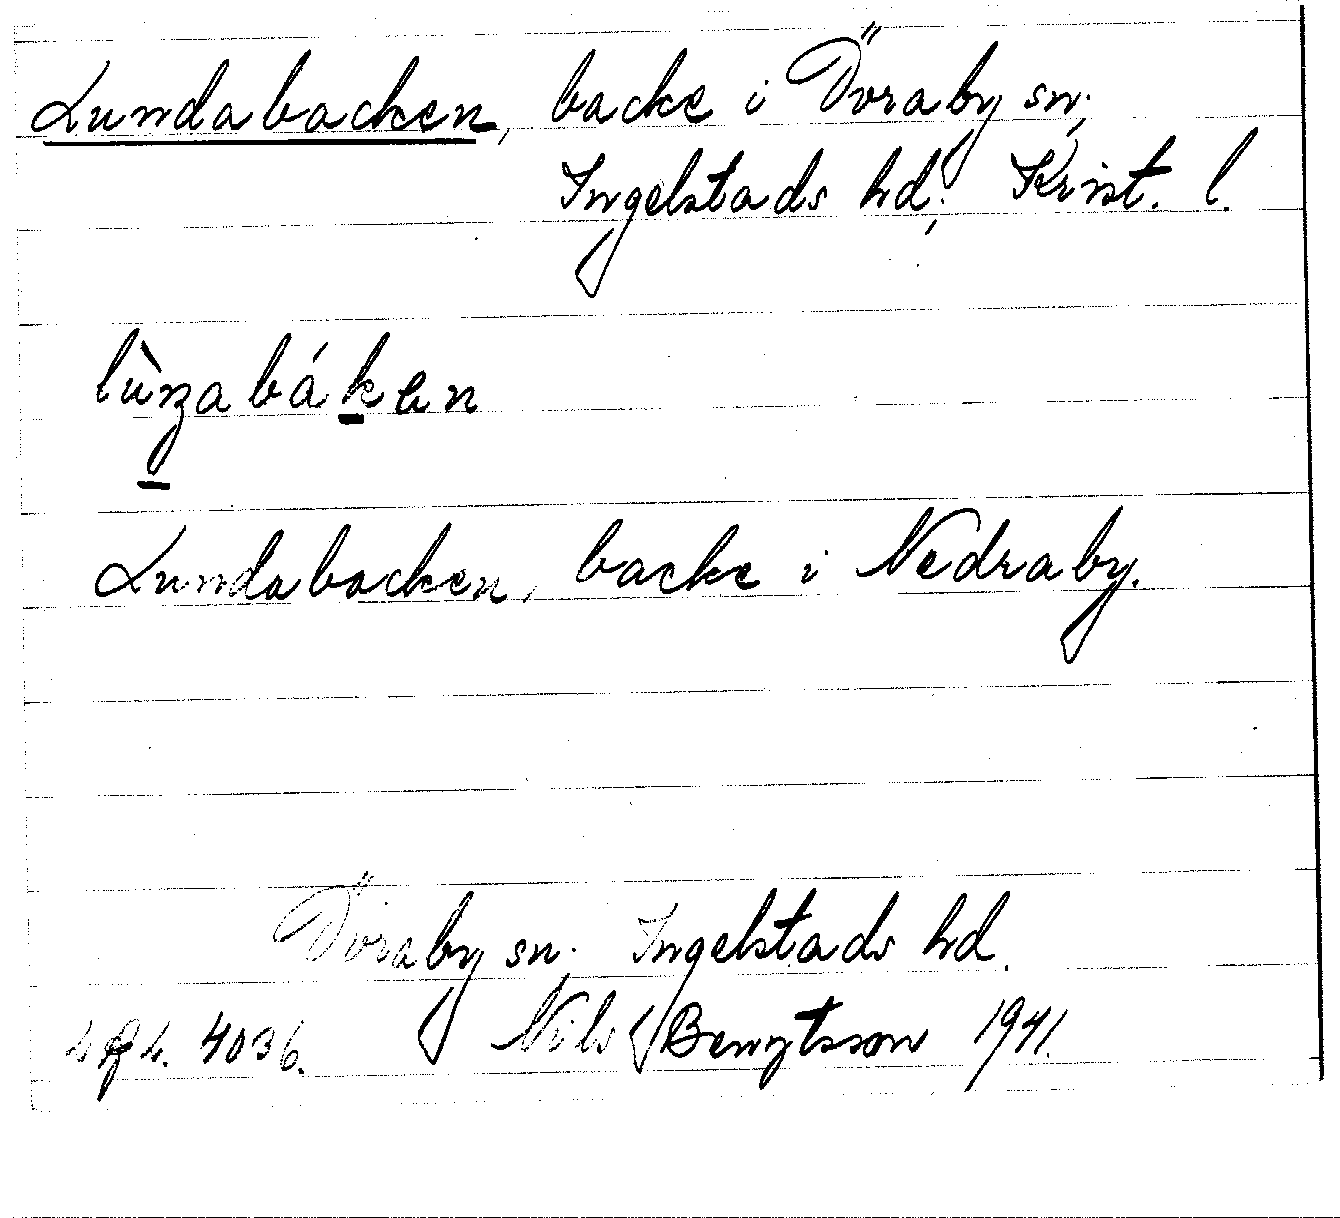 Lundabacken, backe i Öraby sn,
Ingelstads hd, Krist. l.
lùnabáken
Lundabacken, backe i Nedraby.
Öraby sn. Ingelstads hd.
4036. Nils Bengtsson 1941.